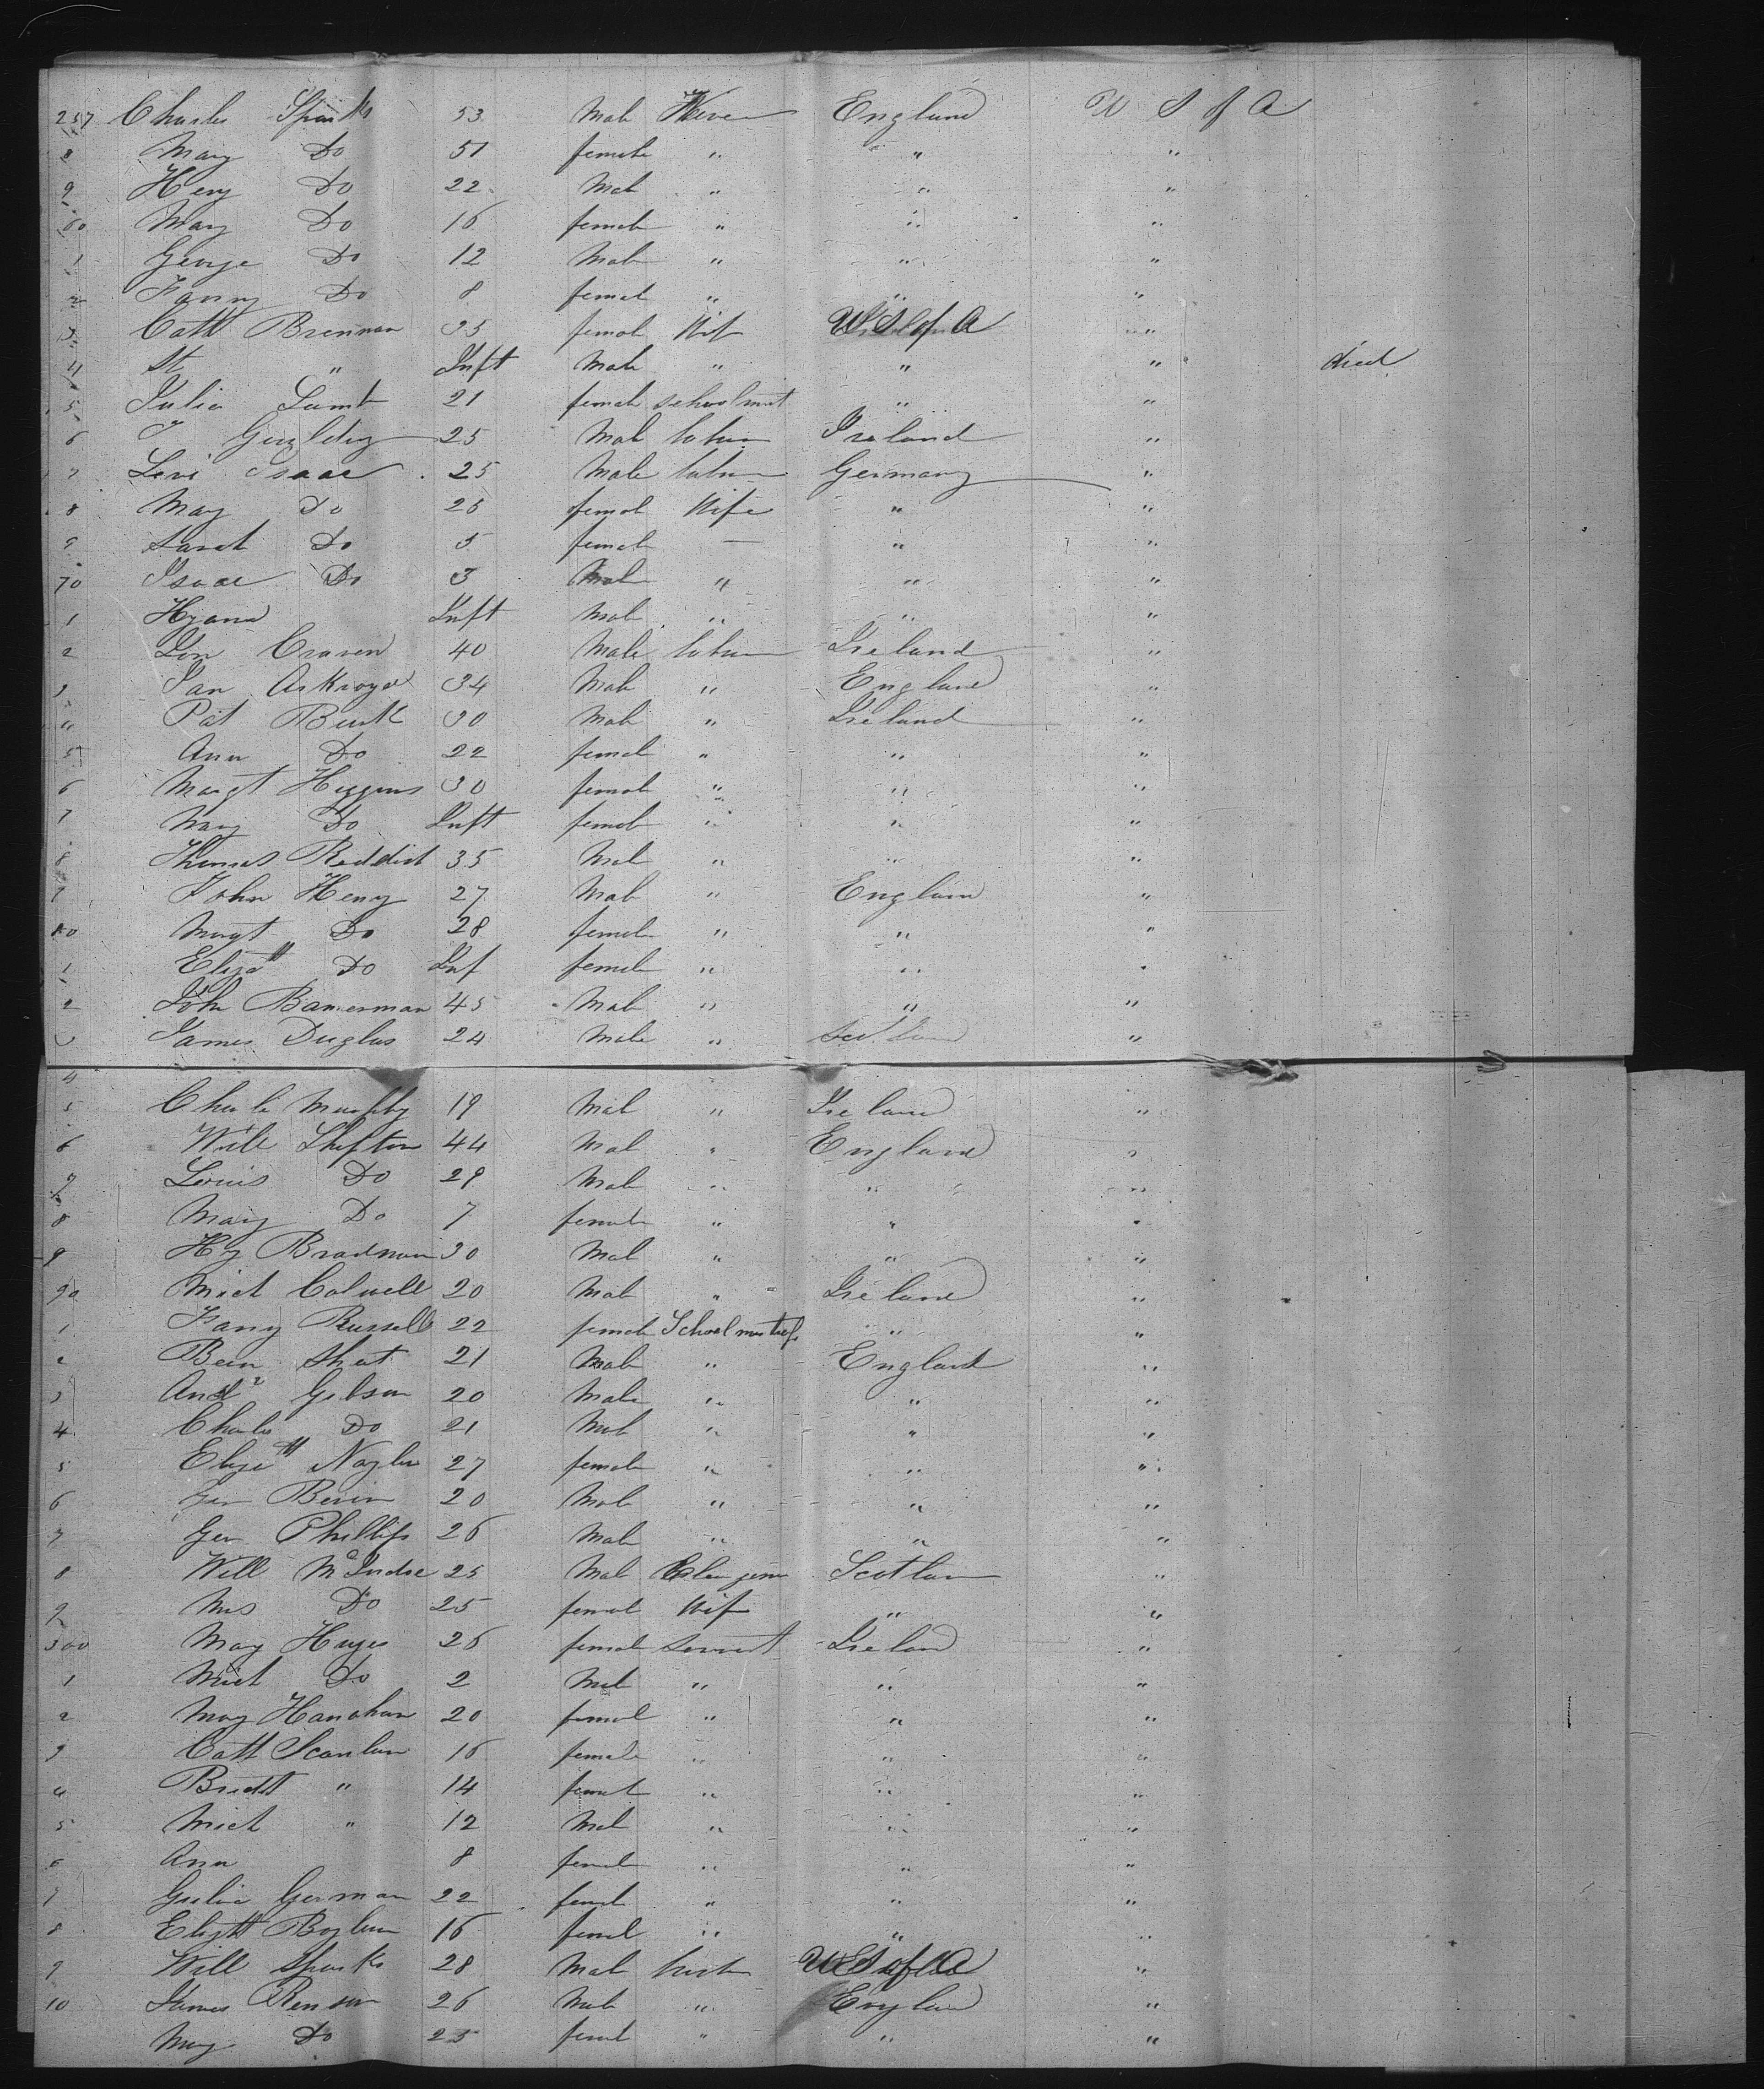 257 Charles Spinks 53 Male Weaver England U S of A
8 Mary Do 51 female " " "
9 Heny Do 22 Male " " "
60 Mary Do 16 female " " "
1 George Do 12 Male " " "
2 Fanny Do 8 female " " "
3 Cath Brennan 35 female Wife U S of A "
4 St " Inft Male " " " died
5 Julia Lamb 21 female schoolmist " "
6 25 Male Labour Ireland "
7 Levi Isaac 25 Male Labour Germany "
8 Mary Do 25 female Wife " "
9 Sarah Do 5 female — " "
70 Isaac Do 3 Male " " "
1 Inft Male " " "
2 Craven 40 Male Labour Ireland "
3 Askroyd 34 Male " England "
4 Pat Burk 30 Male " Ireland "
5 Ann Do 22 female " " "
6 Margt Higgins 30 female " " "
7 Mary Do Inft female " " "
8 Thomas Reddich 35 Male " " "
9 John Henry 27 Male " England "
80 Margt Do 28 female " " "
1 Elizath Do Inf female " " "
2 John Bannerman 45 Male " " "
3 James Duglas 24 Male " Scotland "
4
5 Charles Murphy 19 Male " Ireland "
6 Will Shefton 44 Male " England "
7 Louis Do 29 Male " " "
8 Mary Do 7 female " " "
9 Hy Bradman 30 Male " " "
90 Mich Colwell 20 Male " Ireland "
1 Fany Russell 22 female Schoolmistress " "
2 21 Male " England "
3 Andw Gibson 20 Male " " "
4 Charles Do 21 Male " " "
5 Elizath Naylor 27 female " " "
6 20 Male " " "
7 Geo Phillips 26 Male " " "
8 Will 25 Male Clergym Scotlan "
9 Mrs Do 25 female Wife " "
300 Mary Hayes 26 female servant Ireland "
1 Mich Do 2 Male " " "
2 Mary Hanahan 20 female " " "
3 Cath Scanlan 16 female " " "
4 Bridt " 14 female " " "
5 Mich " 12 Male " " "
6 Ann 8 female " " "
7 Gulia German 22 female " " "
8 Elizth Boylan 16 female " " "
9 Will Spinks 28 Male U S of A "
10 James Renson 26 Male " England "
Mary Do 25 female " " "